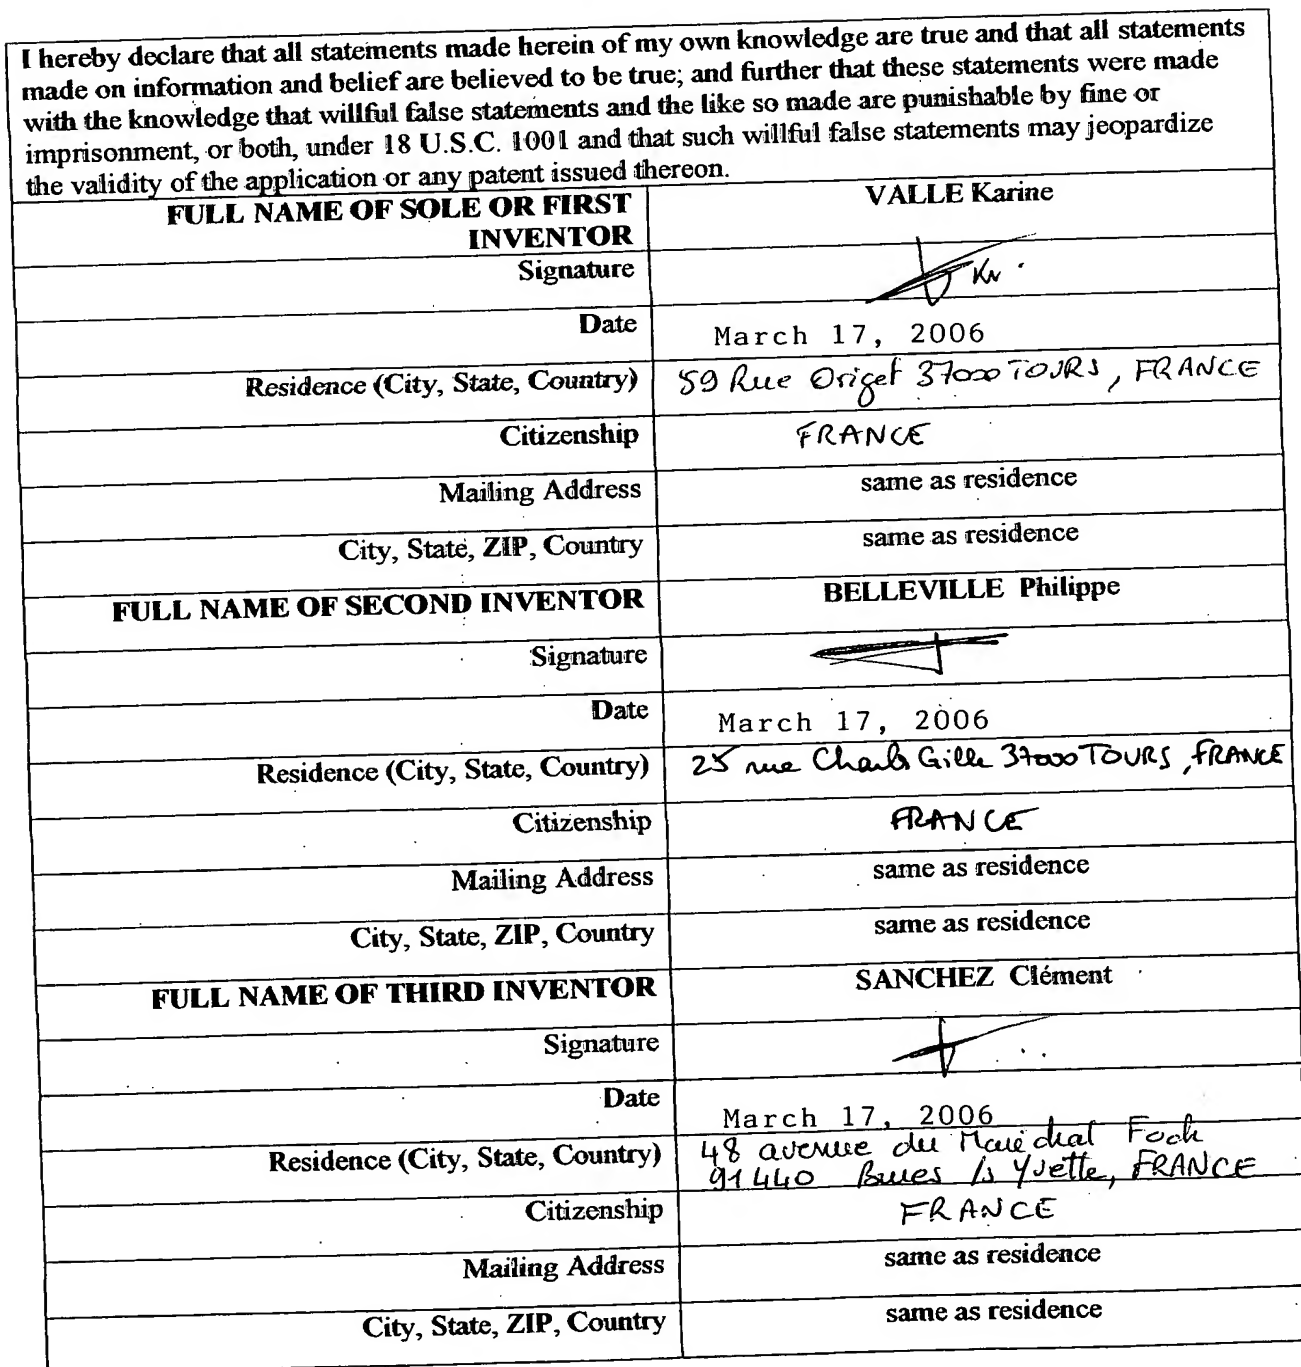 I hereby declare that all statements made herein of my own knowledge are true and that all statements
made on information and belief are believed to be true; and further that these statements were made
with the knowledge that willful false statements and the like so made are punishable by fine or
imprisonment, or both, under 18 U.S.C. 1001 and that such willful false statements may jeopardize
the validity of the application or any patent issued thereon.
FULL NAME OF SOLE OR FIRST INVENTOR VALLE Karine
Signature
Date March 17, 2006
Residence (City, State, Country) 59 Rue Origet 37000 TOURS, FRANCE
Citizenship FRANCE
Mailing Address same as residence
City, State, ZIP, Country same as residence
FULL NAME OF SECOND INVENTOR BELLEVILLE Philippe
Signature
Date March 17, 2006
Residence (City, State, Country) 25 rue Charles Gille 37000 TOURS, FRANCE
Citizenship FRANCE
Mailing Address same as residence
City, State, ZIP, Country same as residence
FULL NAME OF THIRD INVENTOR SANCHEZ Clément
Signature
Date March 17, 2006
Residence (City, State, Country) 48 avenue du Maréchal Foch
91440 Bures /s Yvette, FRANCE
Citizenship FRANCE
Mailing Address same as residence
City, State, ZIP, Country same as residence